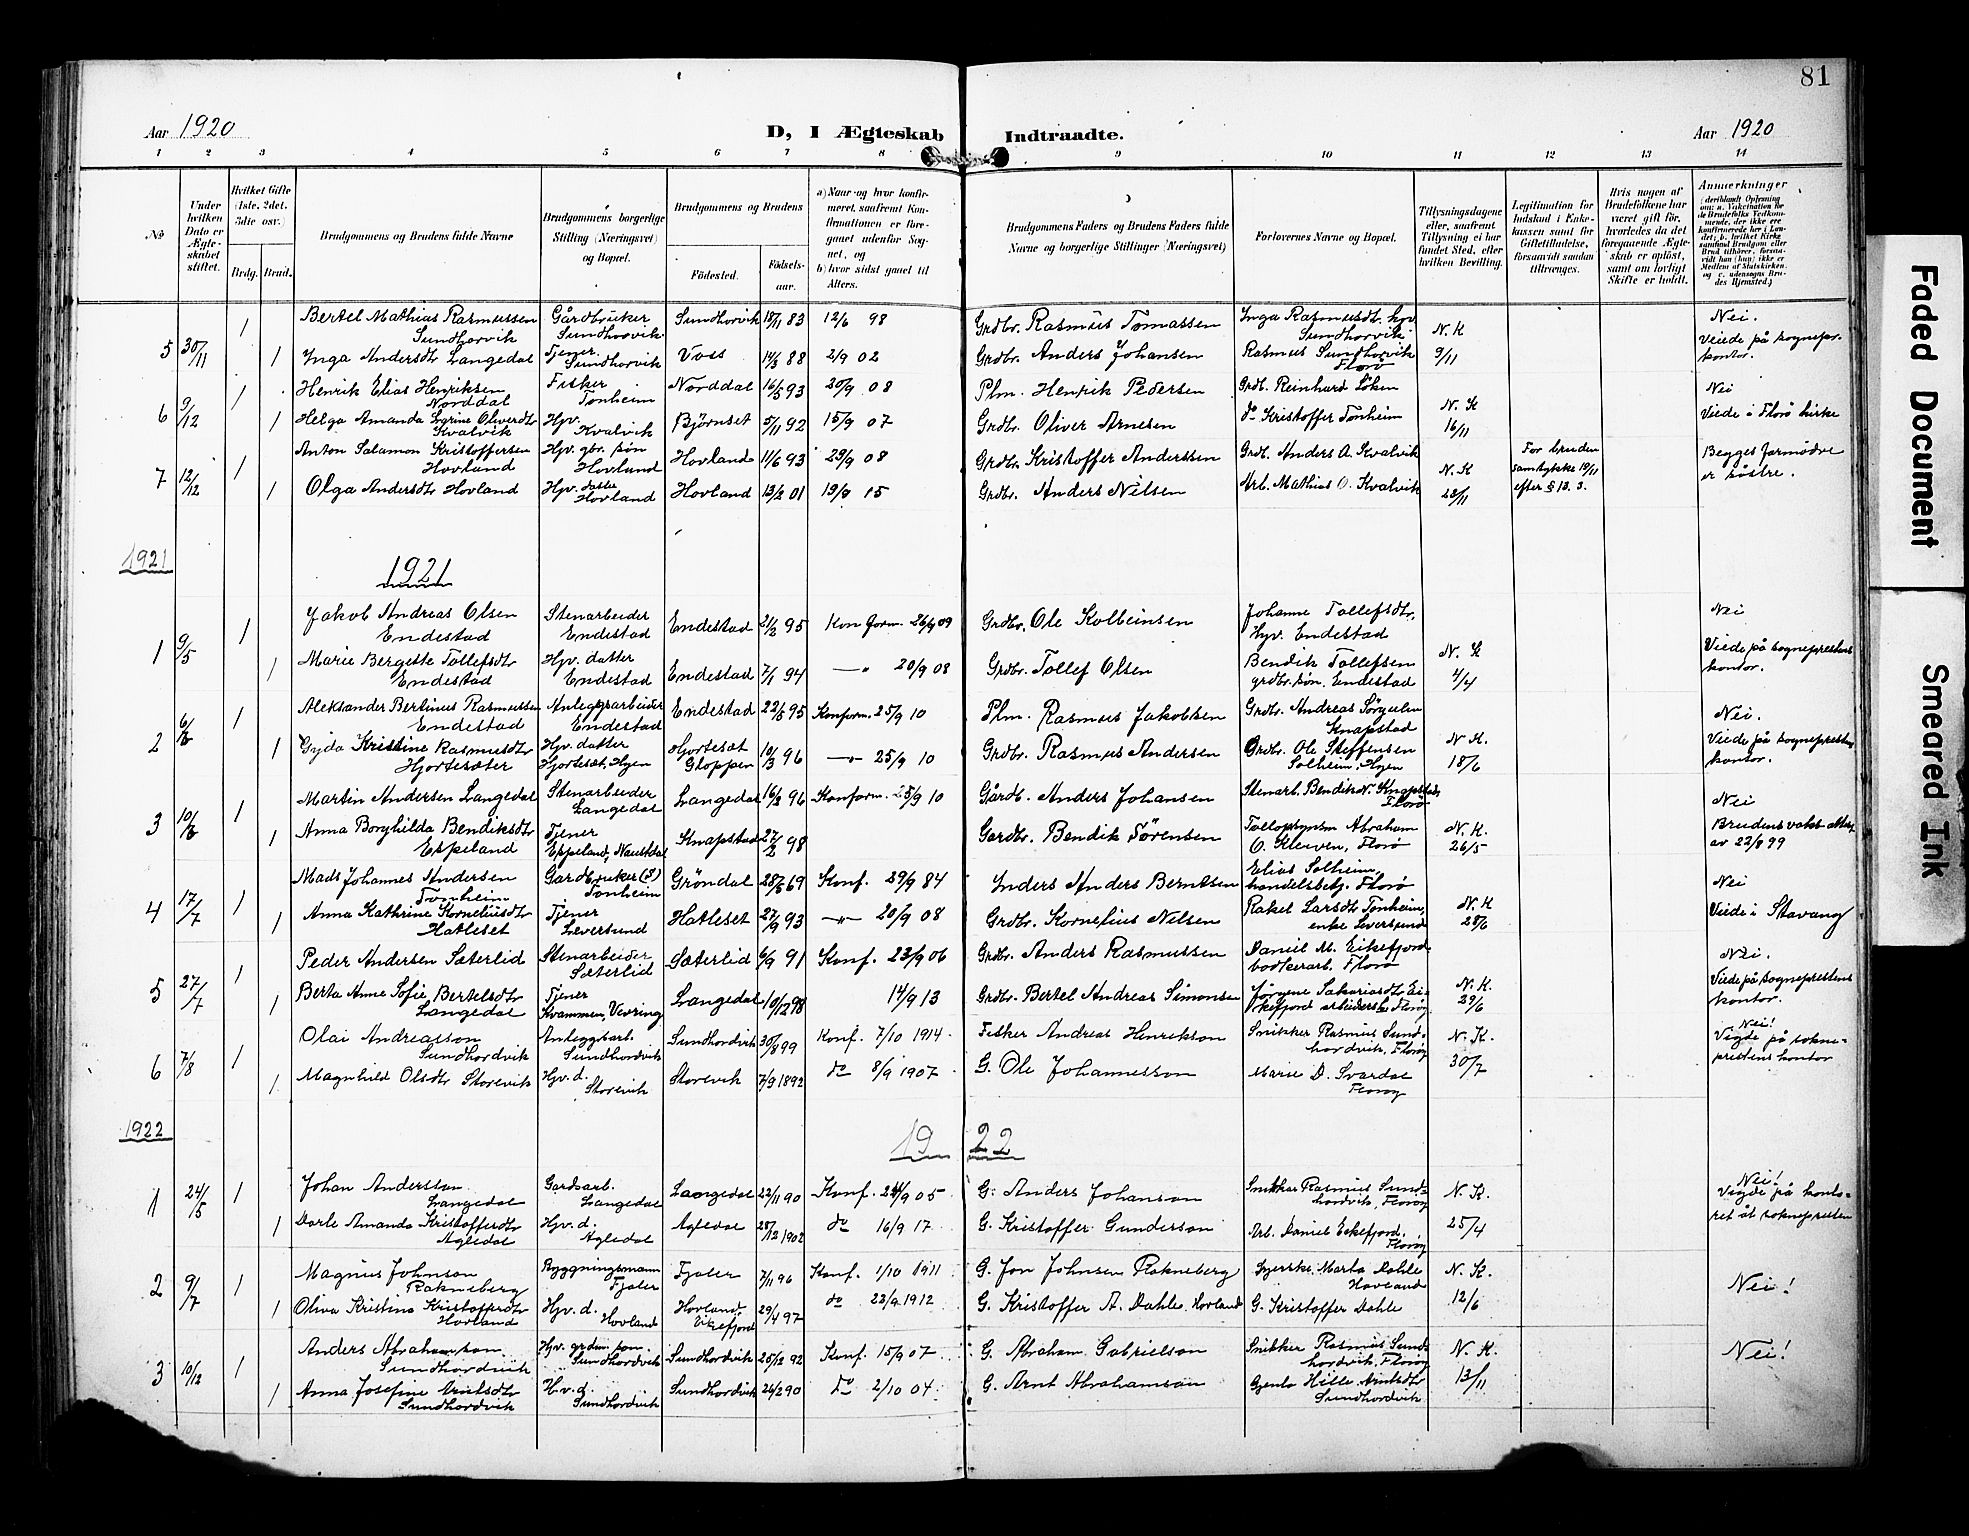 81
Aar 1920
D, I Ægteskab Indtraadte.
Aar 1920
1 2 3 4 5 6 7 8 9 10 11 12 13 14
No
Under hvilken Dato er Ægteskabet stiftet.
Hvilket Gifte (1ste, 2det, 3die osv.)
Brdg. Brud.
Brudgommens og Brudens fulde Navne
Brudgommens borgerlige Stilling (Næringsvei) og Bopæl.
Brudgommens og Brudens
Fødested. Fødselsaar.
a) Naar og hvor konfirmeret, saafremt Konfirmationen er foregaaet udenfor Sognet, og
b) hvor sidst gaaet til Alters.
Brudgommens Faders og Brudens Faders fulde Navne og borgerlige Stillinger (Næringsvei)
Forlovernes Navne og Bopæl.
Tillysningsdagene eller, saafremt Tillysning ei har fundet Sted, efter hvilken Bevilling.
Legitimation for Indskud i Enkekassen samt for Giftetilladelse, forsaavidt saadan tiltrænges.
Hvis nogen af Brudefolkene har været gift før, hvorledes da det foregaaende Ægteskab er opløst, samt om lovligt Skifte er holdt.
Anmerkninger
5 30/11 1 Bertel Mathias Rasmussen Sundhorvik Gårdbruker Sundhorvik Sundhorvik 18/11 83 12/6 98 Grdbr. Rasmus Tomassen Inga Rasmusdt. hjv. Sundhorvik N. K Nei.
1 Inga Andersdtr Langedal Tjener Sundhorvik Voss 14/3 88 2/9 02 Grdbr. Anders Johansen Rasmus Sundhorvik Florö 9/11 Viede på sognepr. kontor.
6 9/12 1 Henrik Elias Henriksen Norddal Fisker Tonheim Norddal 16/5 93 20/9 08 Plm. Henrik Pedersen Grdb. Reinhard Löken N. K Nei
1 Helga Amanda Oliverdtr Kvalvik Hjv. Kvalvik Björnset 5/11 92 15/9 07 Grdbr. Oliver Arnesen do Kristoffer Tonheim 16/11 Viede i Florö kirke
7 12/12 1 Anton Salamon Kristoffersen Hovland Hjv. gbr. sön Hovland Hovland 11/6 93 29/9 08 Grdbr. Kristoffer Anderssen Grdb. Anders A. Kvalvik N. K For bruden samtykke 19/11 efter § 13. 3. Begges farmödre er söstre.
1 Olga Andersdtr Hovland Hjv. datter Hovland Hovland 13/2 01 19/9 15 Grdbr. Anders Nilsen Arb. Mathias O. Kvalvik 23/11
1921
1921
1 9/5 1 Jakob Andreas Olsen Endestad Stenarbeider Endestad Endestad 21/2 95 Konform. 26/9 09 Grdbr. Ole Kolbeinsen Johanne Tollefsdtr, Hjv. Endestad N. K Nei
1 Marie Bergette Tollefsdtr Endestad Hjv. datter Endestad Endestad 7/1 94 —"— 20/9 08 Grdbr. Tollef Olsen Bendik Tollefsen grdbr. sön. Endestad 4/4 Viede på sogneprestens kontor.
2 6/ 1 Aleksander Bertinus Rasmussen Endestad Anlegsarbeider Endestad Endestad 22/5 95 Konform. 25/9 10 Plm. Rasmus Jakobsen Grdbr. Andreas Knapstad N. K. Nei.
1 Gyda Kristine Rasmusdtr Hjortesæter Hjv. datter Hjortesæt, Hyen Hjortesæt Gloppen 10/3 96 —"— 25/9 10 Grdbr. Rasmus Andersen Grdbr. Ole Steffensen Solheim, Hyen 18/6 Viede på sogneprestens kontor.
3 10/ 1 Martin Andersen Langedal Stenarbeider Langedal Langedal 16/2 96 Konform. 25/9 10 Gårdb. Anders Johansen Stenarb. Bendik N. Knapstad, Florö N. K. Nei
1 Anna Borghilda Bendiksdtr Espeland Tjener Espeland, Naustdal Knapstad 27/2 98 Gardbr. Bendik Sörensen Abraham O. Kleiven, Florö 26/5 Brudens vaks. attest av 22/8 99
4 17/7 1 Mads Johannes Andersen Tonheim Gardbruker Tonheim Gröndal 28/5 69 Konf. 29/9 84 Inders Anders Berntsen Elias Solheim, handelsbetj. Florö N. K Nei
1 Anna Kathrine Korneliusdtr Hatleset Tjener Leversund Hatleset 27/9 93 —"— 20/9 08 Grdbr. Kornelius Nilsen Rakel Larsdtr Tonheim, enke Leversund 28/6 Viede i Stavang
5 27/7 1 Peder Andersen Sæterlid Stenarbeider Sæterlid Sæterlid 6/9 91 Konf. 23/9 06 Grdbr. Anders Rasmussen Daniel M. Eikefjord bödkerarb. Florö N. K. Nei.
1 Berta Anne Sofie Bertelsdtr Langedal Tjener Kvammen, Vevring Langedal 10/12 98 14/9 13 Grdbr. Bertel Andreas Simonsen Jörgine Sakariasdtr Eikefjord Floröy 29/6 Viede på sogneprestens kontor.
6 7/8 1 Olai Andreasson Sundhordvik Anleggsarb. Sundhordvik Sundhordvik 30/8 99 Konf. 7/10 1914 Fisker Andreas Henrikson Snikker Rasmus Sundhordvik, Floröy N. K. Nei! Vigde på sokneprestens kontor
1 Magnhild Olsdtr Storevik Hjv. d. Storevik Storevik 7/9 1892 do 8/9 1907 G. Ole Johannesson Marie D. Svardal Floröy 30/7
1922
1922
1 24/5 1 Johan Andersson Langedal Gardsarb. Langedal Langedal 22/11 90 Konf. 24/9 05 G. Anders Johanson Snikkar Rasmus Sundhordvik, Floröy N. K. Nei! Vigde på kontoret åt soknepresten
1 Dorte Amanda Kristofferdtr Agledal Hjv. d. Agledal Agledal 28/12 1902 do 16/9 17 G. Kristoffer Gunderson Arb. Daniel Eikefjord, Floröy 25/4
2 9/7 1 Magnus Johnson Rakneberg Byggningsmann Fjaler Fjaler 7/11 96 Konf. 1/10 1911 G. Jon Johnsen Rakneberg Marta Dahle Hovland N. K. Nei!
1 Oliva Kristina Kristofferdtr Hovland Hjv. d. Hovland Hovland Eikefjord 29/4 97 do 22/9 1912 G. Kristoffer A. Dahle, Hovland G. Kristoffer Dahle 12/6
3 10/12 1 Anders Abrahamson Sundhordvik Hjv. grdm. son Sundhordvik Sundhordvik 25/2 92 Konf. 15/9 07 G. Abraham Gabrielson Snikker Rasmus Sundhordvik, Floröy N. K. Nei!
1 Anna Josefine Arntsdtr Sundhordvik H.v.d. Sundhordvik Sundhordvik 26/2 90 do 2/10 04 G. Arnt Abrahamson Gjenta Hille Arntsdtr Sundhordvik 13/11
Faded Document
Smeared Ink